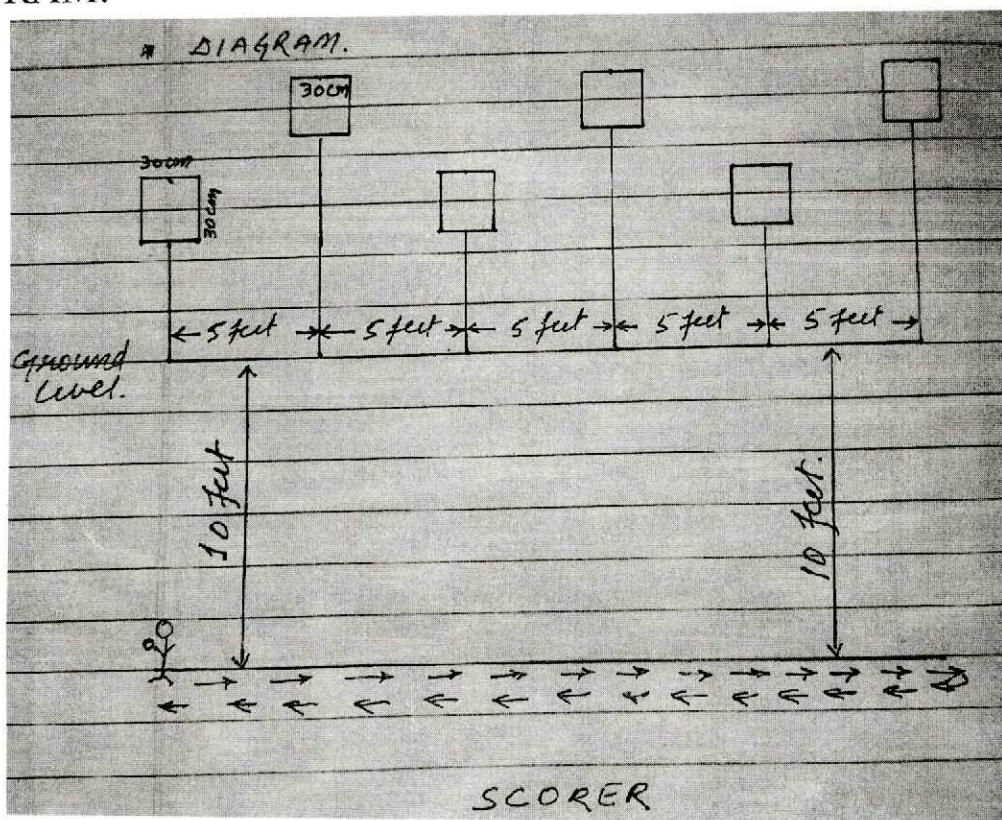 RAM:
* DIAGRAM.
30cm
30cm
30cm
5 feet 5 feet 5 feet 5 feet 5 feet
Ground
level.
10 feet
10 feet.
SCORER